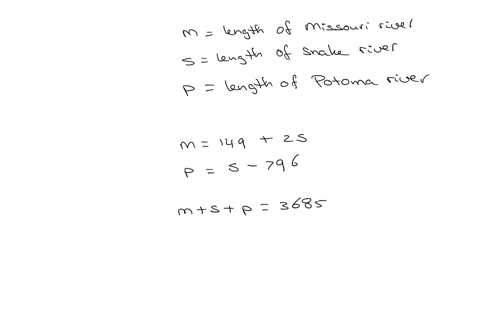 m = length of Missouri river
s = length of snake river
p = length of Potoma river
m = 149 + 2s
p = s - 796
m+s+p = 3685